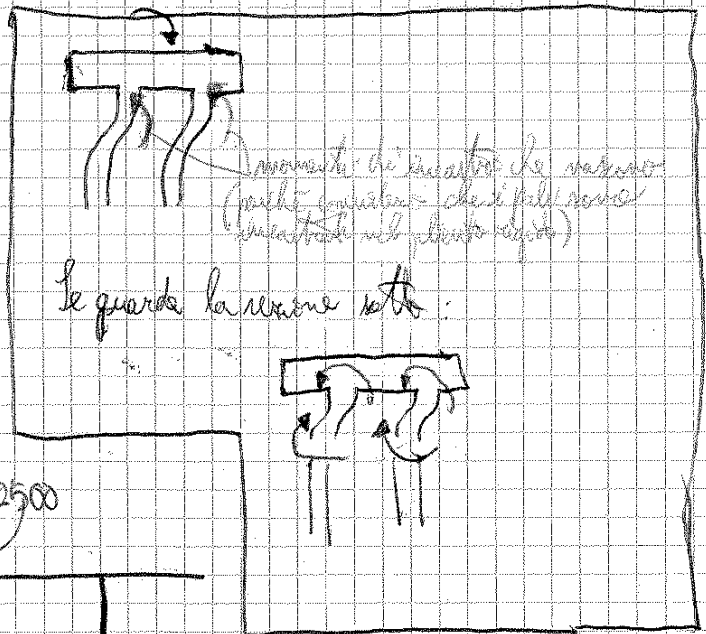 momenti di incastro che nascono
(perché consideri che i pali sono
incastrati nel plinto rigido)
Se guarda la sezione sotto :
2500